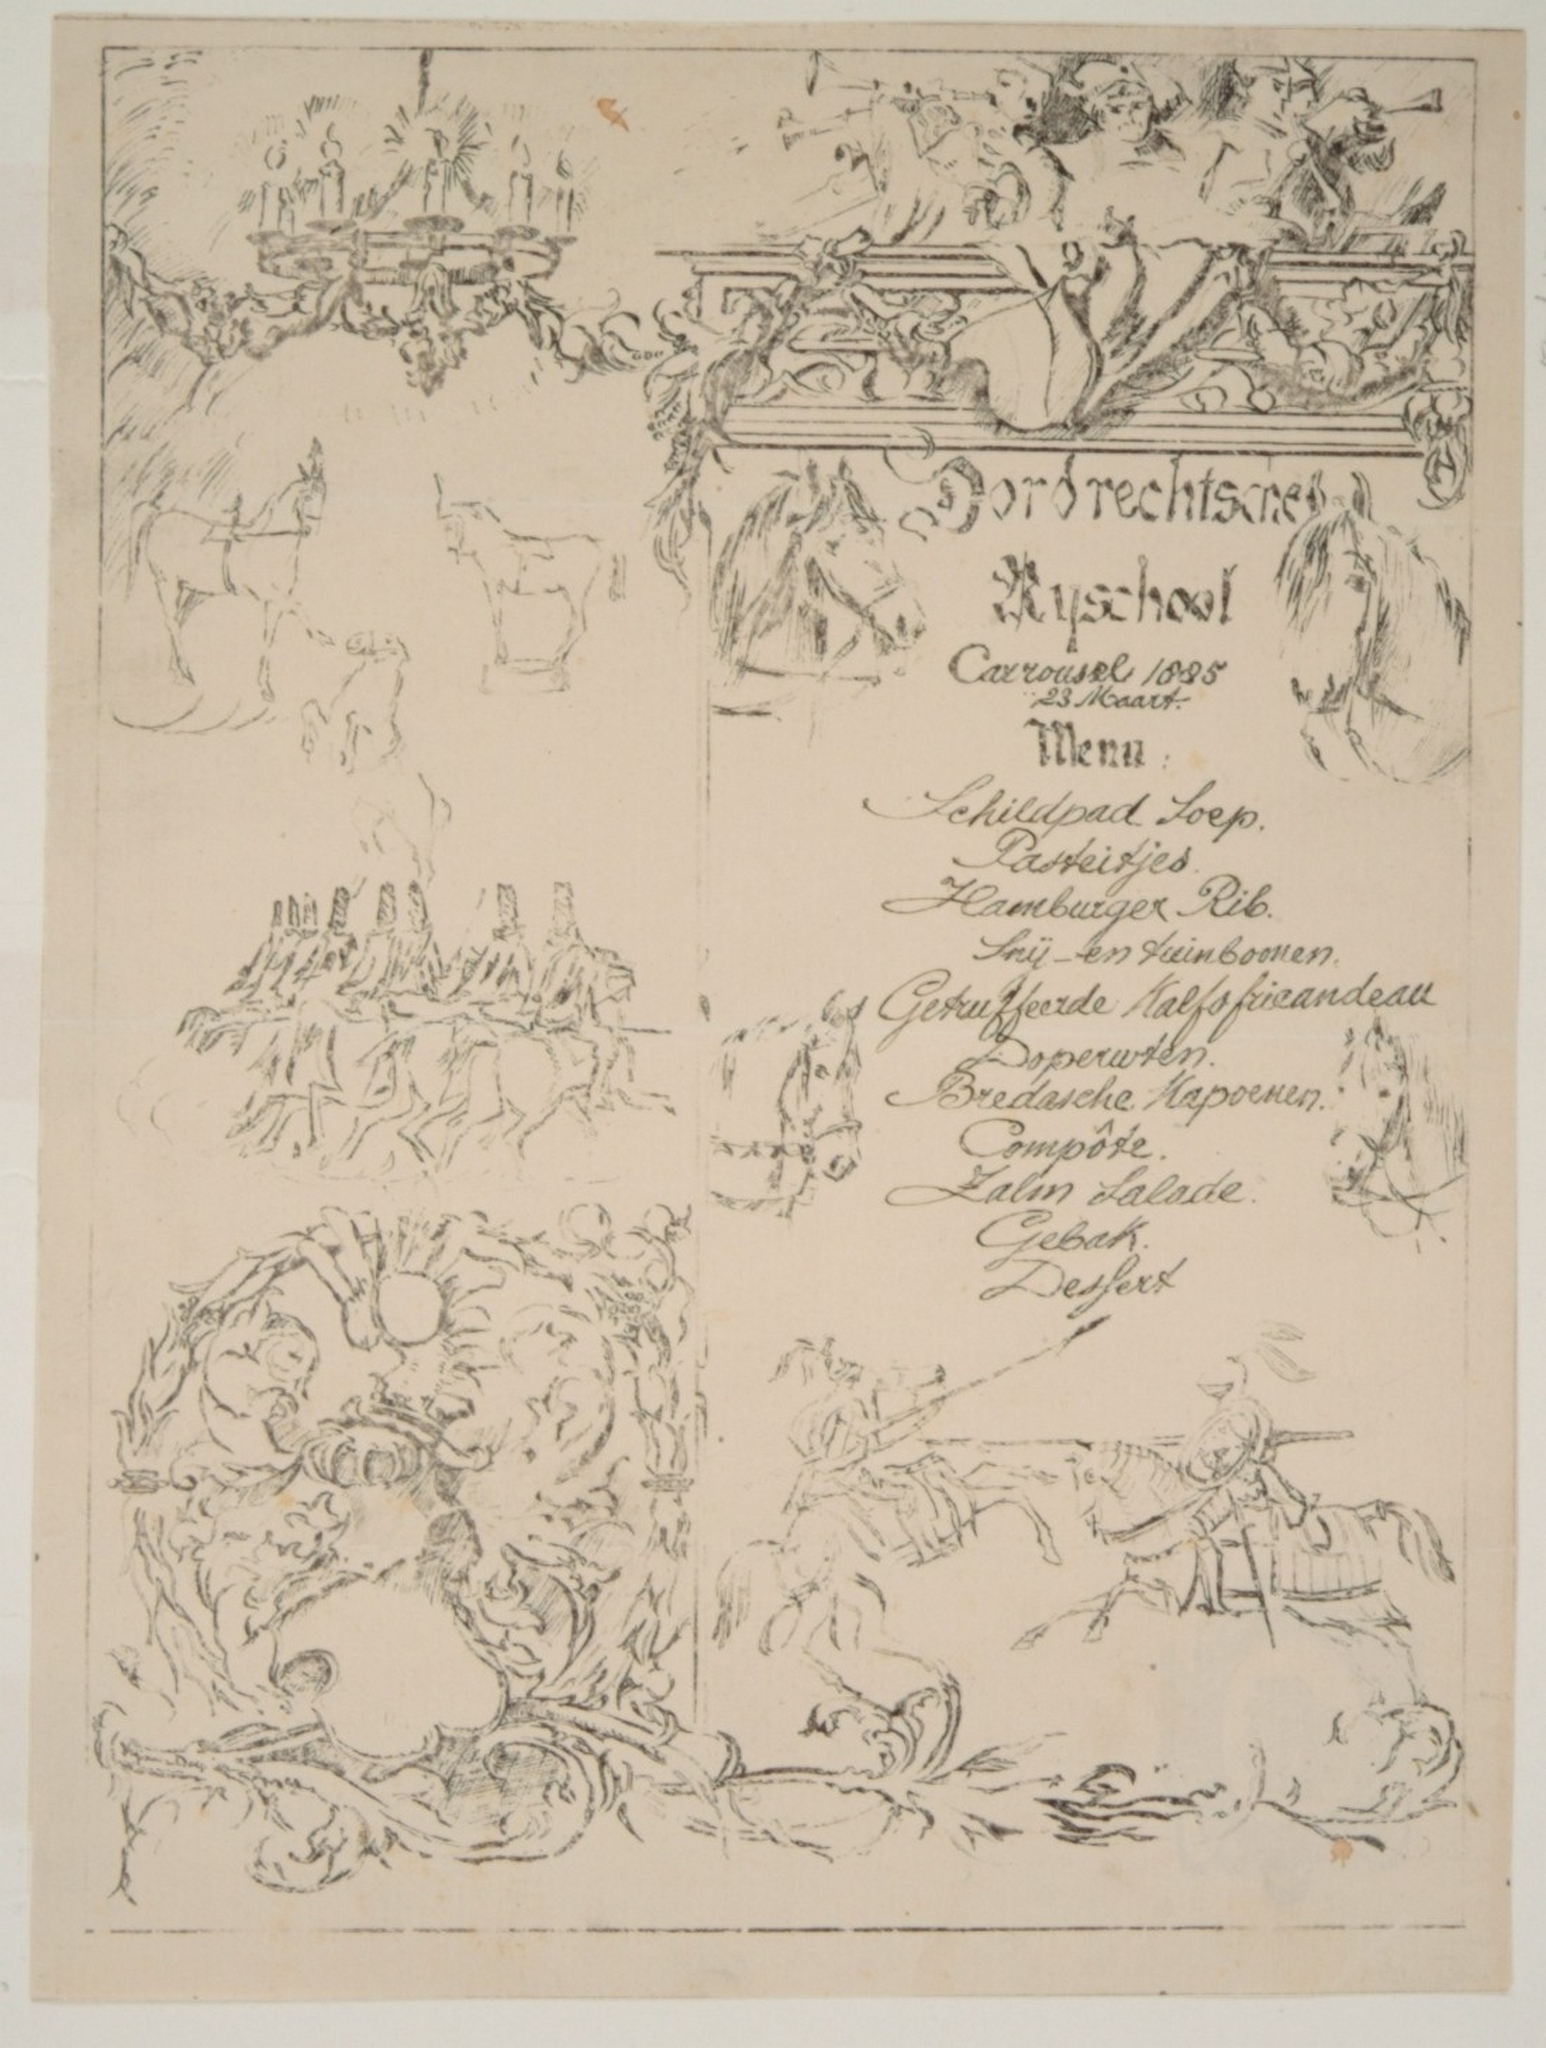 Dordrechtsche
Ryschool
Carrousel 1885
23 Maart.
Menu:
Schildpad Soep.
Pasteitjes.
Hamburger Rib.
Snij-en tuinboonen.
Getruffeerde Kalfsfricandeau
Doperwten.
Bredasche Kapoenen.
Compôte.
Zalm Salade.
Gebak.
Dessert